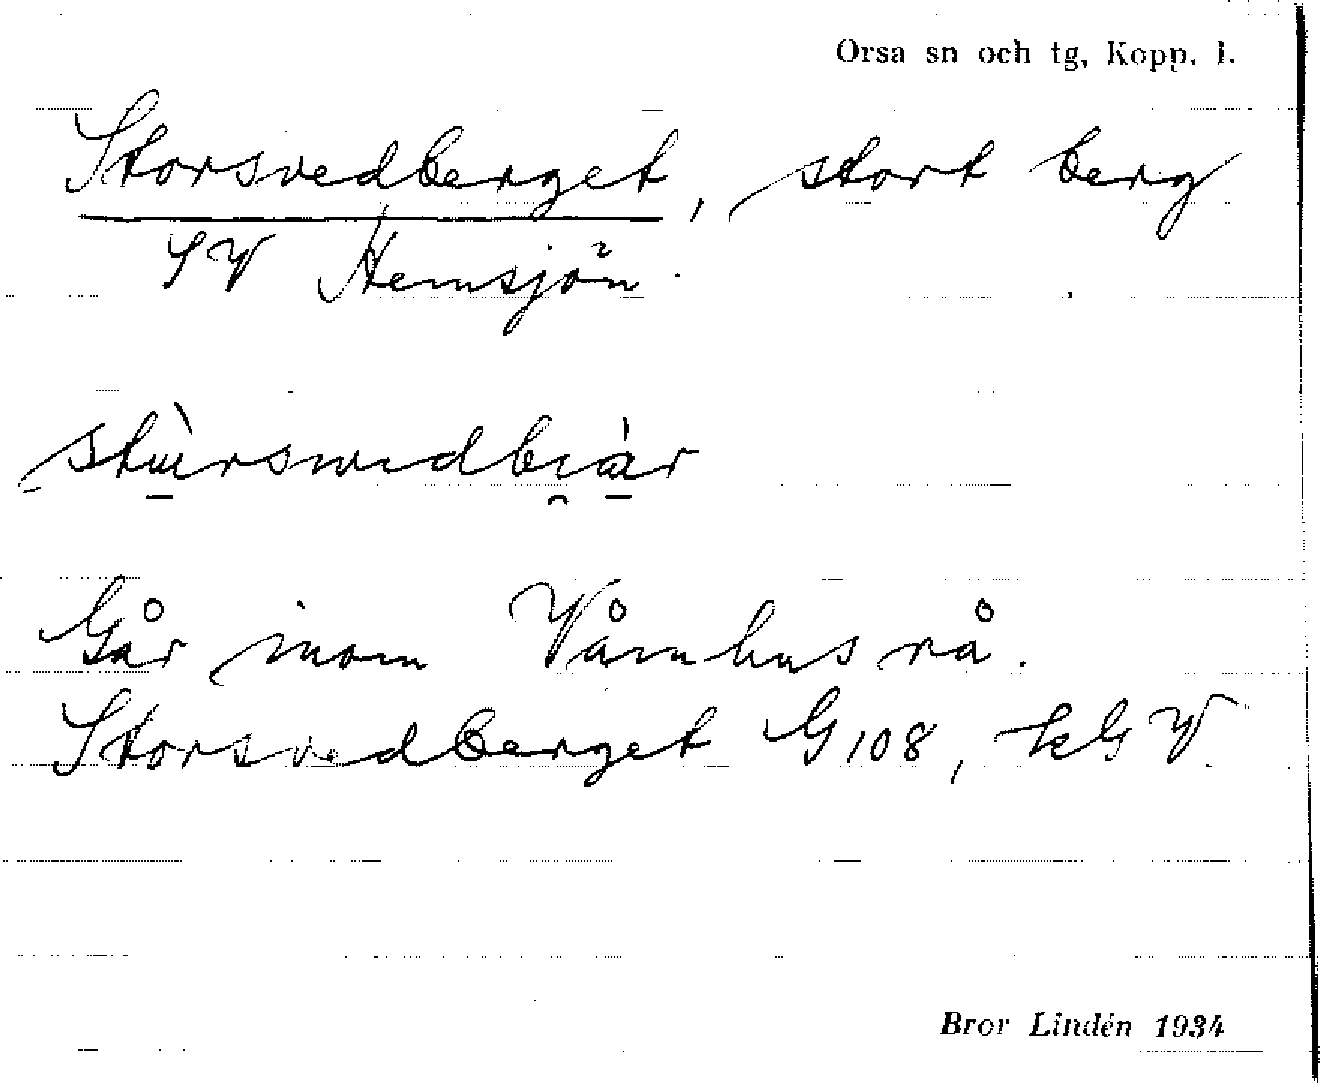 Orsa sn och tg, Kopp. l.
Storsvedberget, stort berg
SV Hemsjön.
stù̱rswedbi̯à̱r
Går inom Våmhus rå.
Storsvedberget G108, kGV.
Bror Lindén 1934